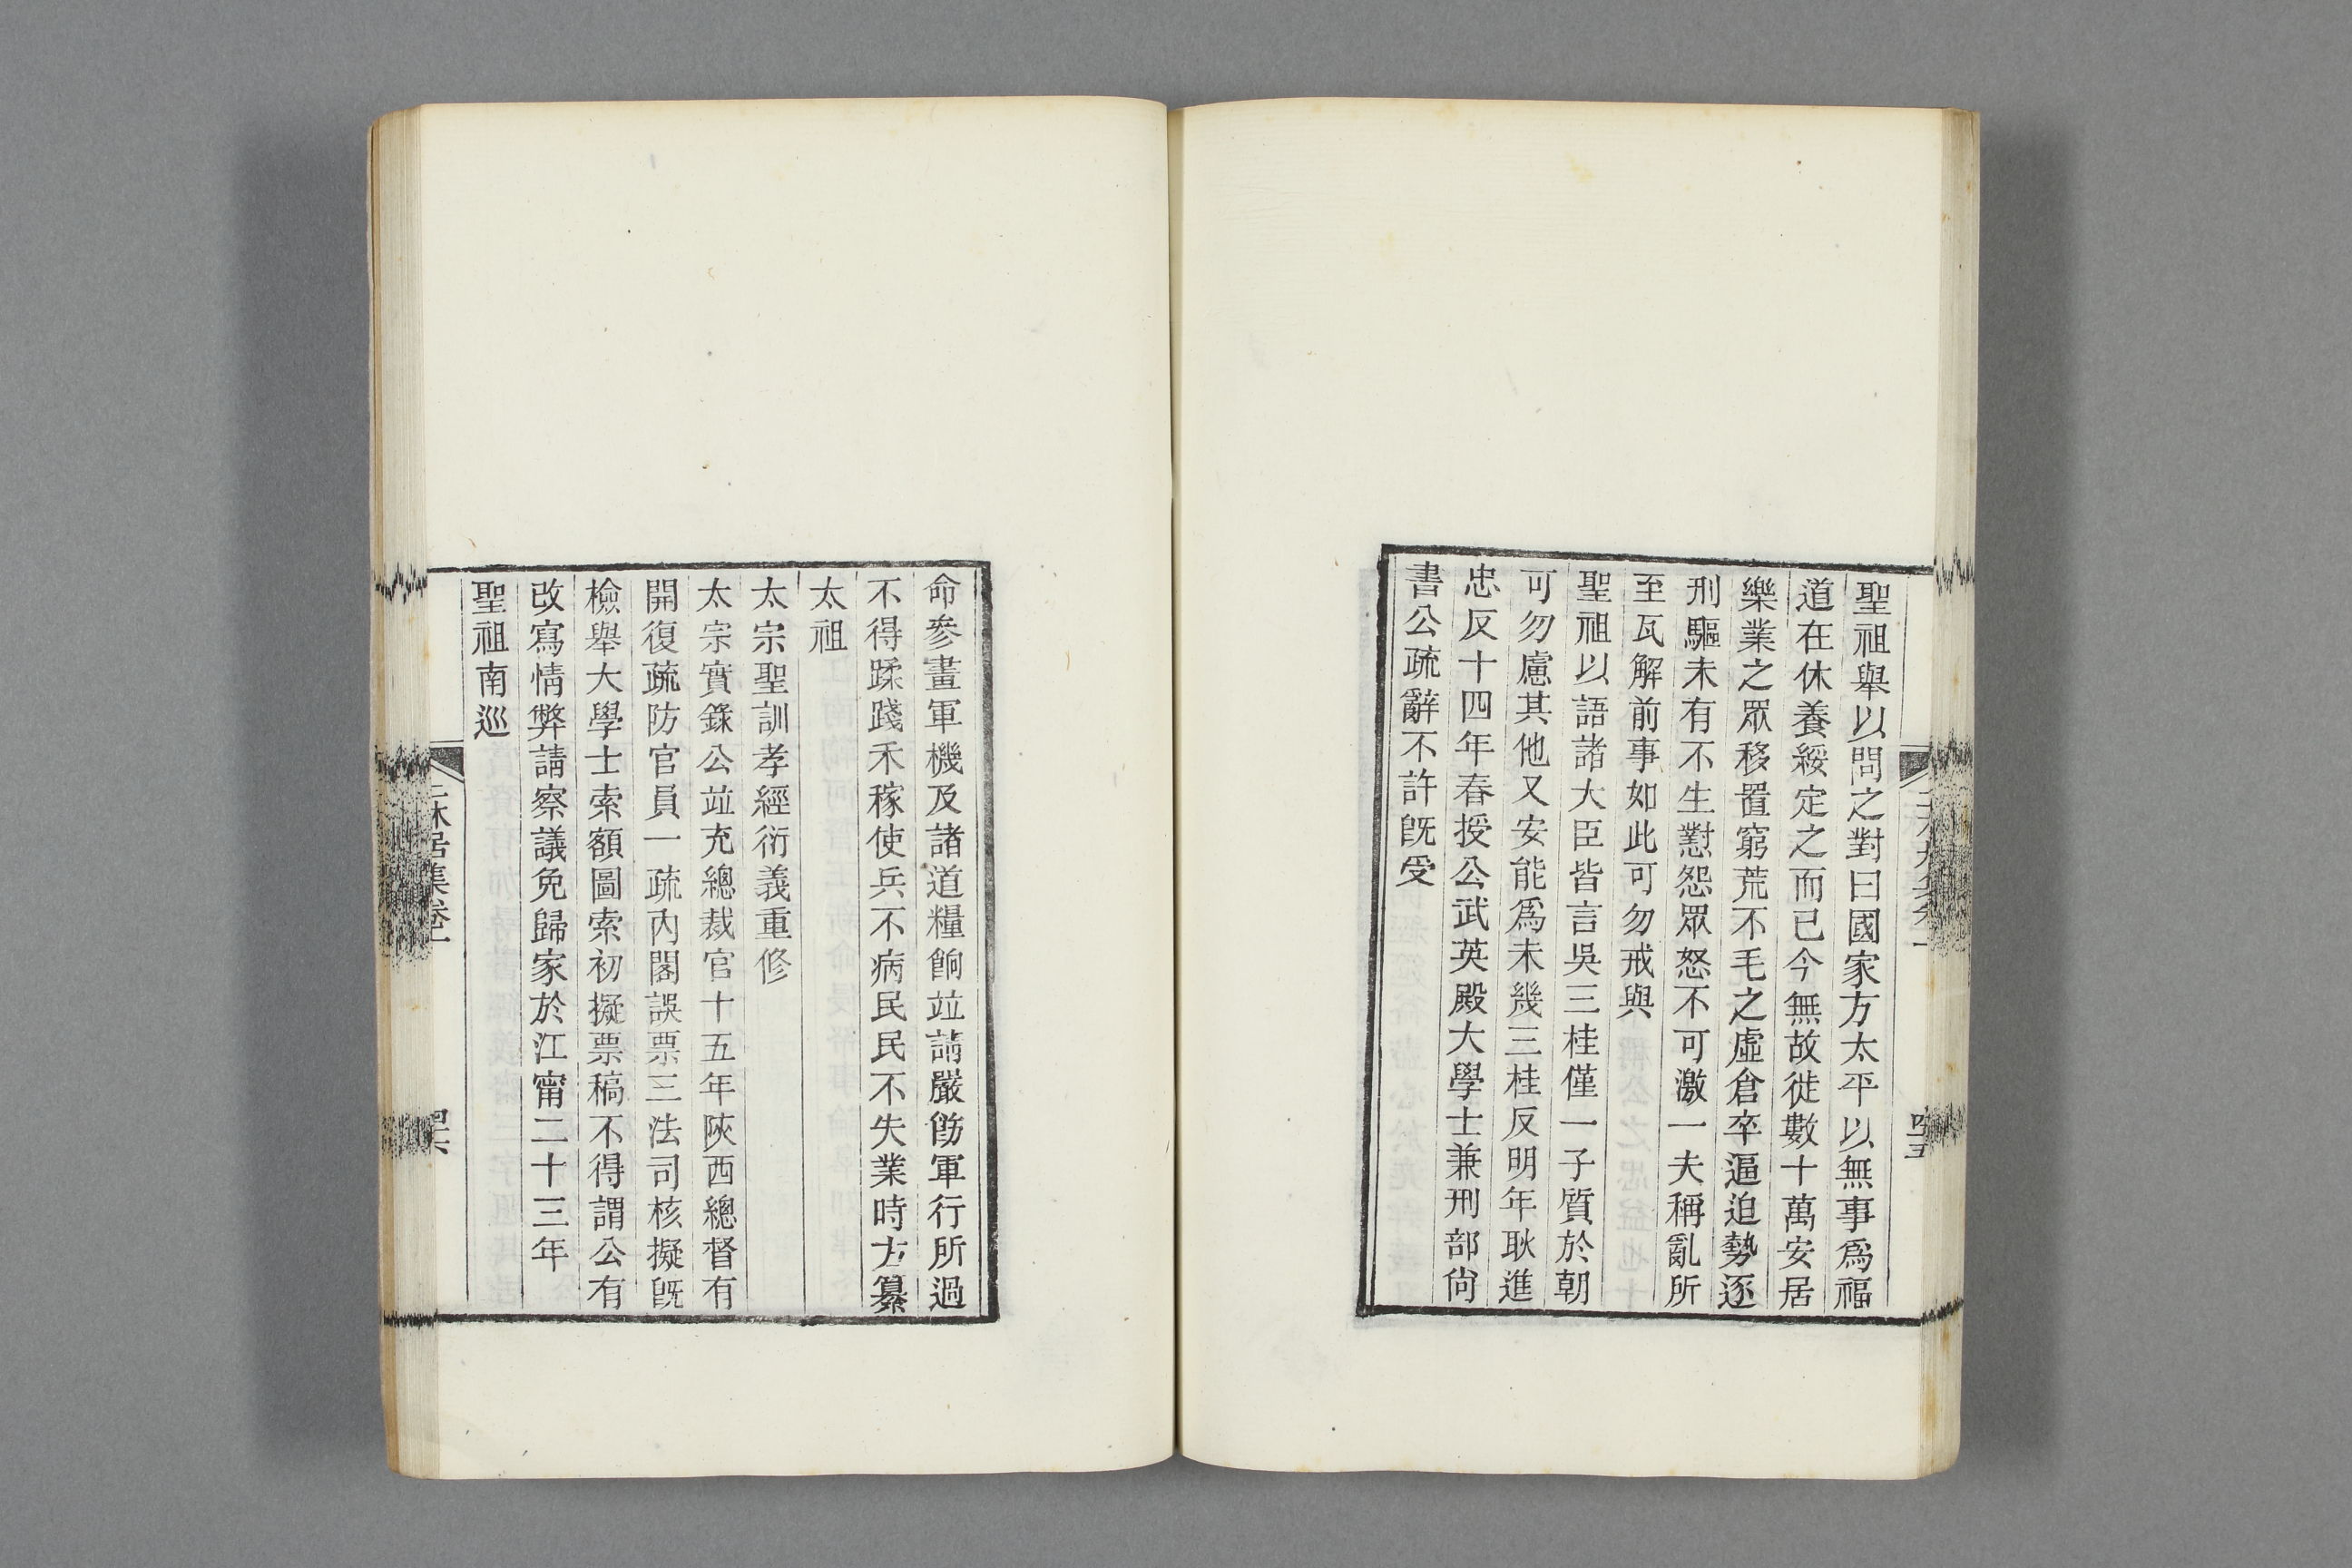 聖祖舉以問之對曰國家方太平以無事爲福
道在休養綏定之而已今無故徙數十萬安居
樂業之眾移置窮荒不毛之虛倉卒逼迫勢逐
刑驅未有不生懟怨眾怒不可激一夫稱亂所
至瓦解前事如此可勿戒與
聖祖以語諸大臣皆言吳三桂僅一子質於朝
可勿慮其他又安能爲未幾三桂反明年耿進
忠反十四年春授公武英殿大學士兼刑部尙
書公疏辭不許旣受
命參畫軍機及諸道糧餉竝請嚴飭軍行所過
不得蹂踐禾稼使兵不病民民不失業時方纂
太祖
太宗聖訓孝經衍義重修
太宗實錄公竝充總裁官十五年陝西總督有
開復疏防官員一疏內閣誤票三法司核擬旣
檢舉大學士索額圖索初擬票稿不得謂公有
改寫情弊請察議免歸家於江甯二十三年
聖祖南巡
二林居集卷十